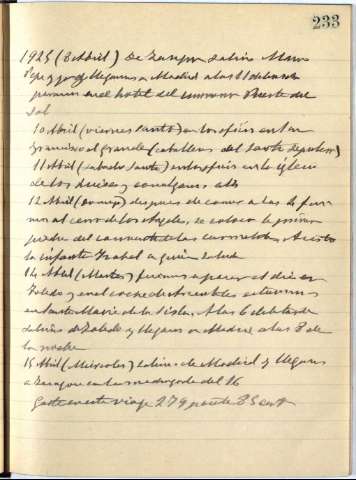 233
1925 (8 Abril) De Zaragoza salimos
Pepe y yo y llegamos a Madrid a las 11 de la noche
paramos en el hotel del Puerta del
Sol
10 Abril (viernes santo) en los oficios en San
Francisco el grande (caballeros del Santo Sepulcro)
11 Abril (sabado santo) en los oficios en la iglesia
de los
12 Abril (domingo) despues de comer a las 4 fui
mos al cerro de los Angeles, se coloco la primera
piedra del convento de las carmelitas, Asistio
la infanta Isabel a quien salude
14 Abril (Martes) fuimos a pasar el dia en
Toledo y en el coche de estuvimos
en Santa Maria de la Sisla, A las 6 de la tarde
salimos de Toledo y llegamos a Madrid a las 8 de
la noche
15 Abril (Miercoles) salimos de Madrid y llegamos
a Zaragoza en la madrugada del 16
Gaste en este viaje 279 85 cent